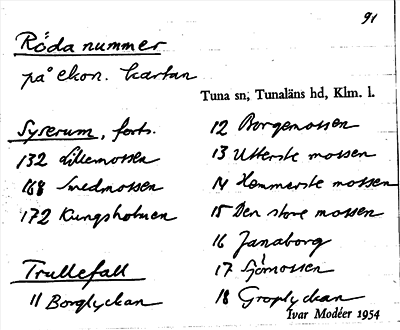 91
Röda nummer
på ekon. kartan
Tuna sn, Tunaläns hd, Klm. l.
Syserum, forts.
132 Lillemossen
168 Smedmossen
172 Kungsholmen
Trullefall
11 Borglyckan
12 Borgemossen
13 Utterste mossen
14 Hemmerste mossen
15 Den store mossen
16 Janaborg
17 Sjömossen
18 Groplyckan
Ivar Modéer 1954